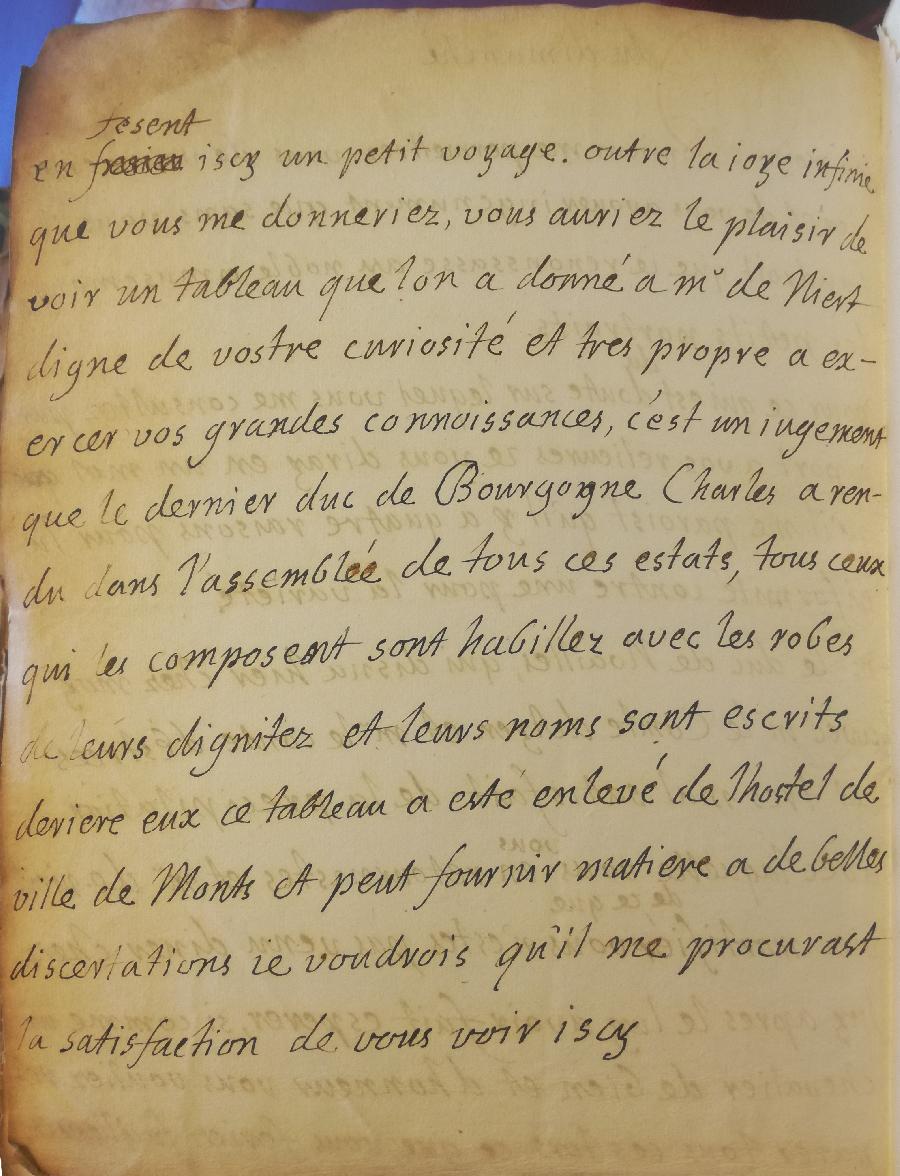 fesent
en iscy un petit voyage. outre la ioye infinie
que vous me donneriez, vous auriez le plaisir de
voir un tableau que lon a donné a mr de Niert
digne de vostre curiosité et tres propre a ex-
ercer vos grandes connoissances, c'est un iugement
que le dernier duc de Bourgogne Charles a ren-
du dans l'assemblée de tous ces estats, tous ceux
qui les composent sont habillez avec les robes
de leurs dignitez et leurs noms sont escrits
deriere eux ce tableau a esté enlevé de lhostel de
ville de Monts et peut fournir matiere a de belles
discertations ie voudrois qu'il me procurast
la satisfaction de vous voir iscy